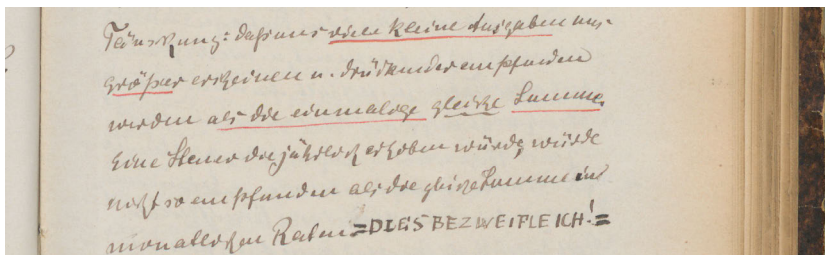 Täuschung: dass uns viele kleine Ausgaben uns
größer erscheinen u. drückender empfunden
werden als die einmalige gleiche Summe.
Eine Steuer die jährlich erhoben würde, würde
nicht so empfunden als die gleiche Summe in
monatlichen Raten =DIES BEZWEIFLE ICH!=